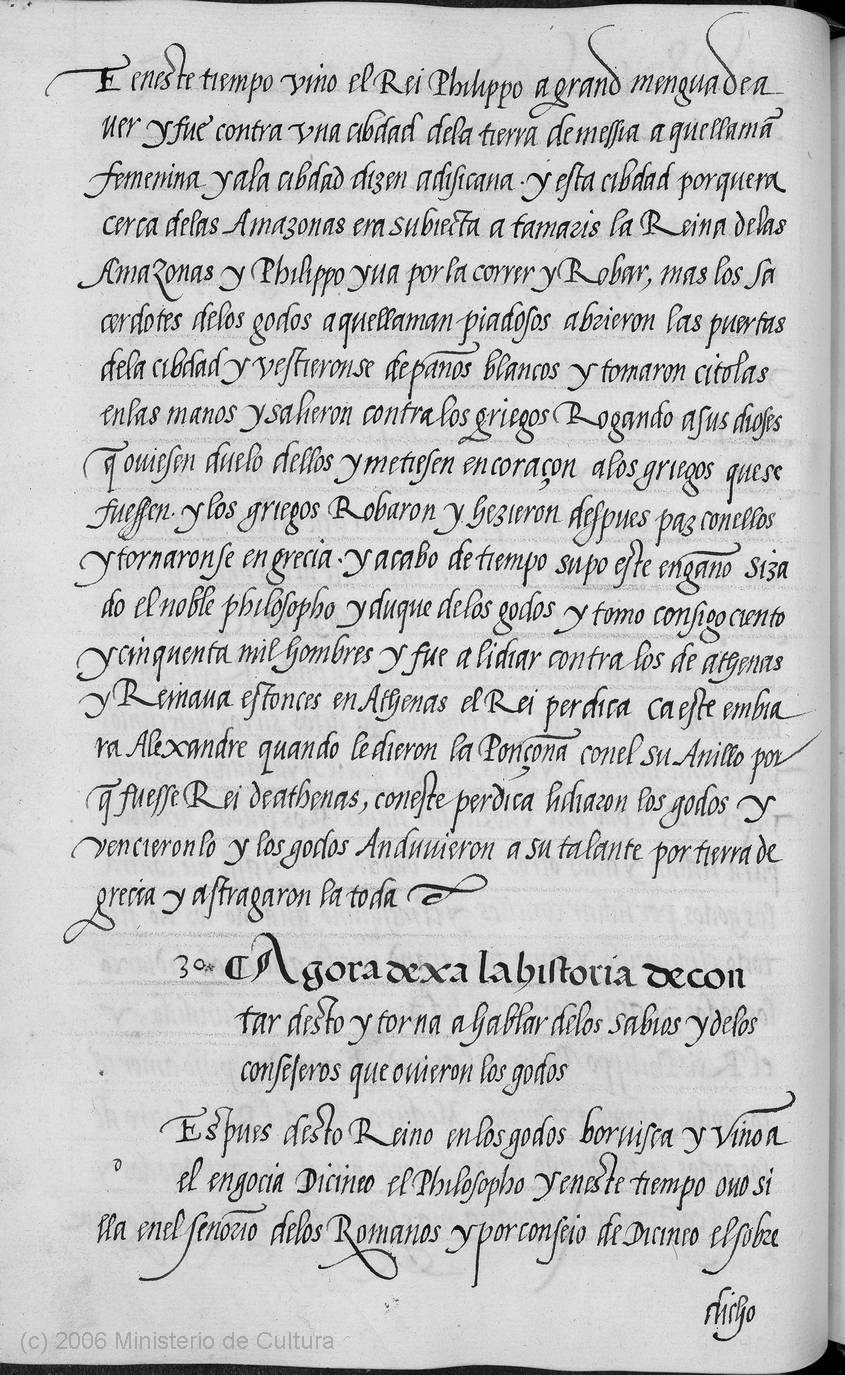 E eneste tiempo vino el Rei Philippo a grand mengua de a
uer y fue contra vna cibdad dela tierra de messia a quellamã
femenina y ala cibdad dizen adisicana. y esta cibdad porquera
cerca delas Amazonas era subiecta a tamaris la Reina delas
Amazonas y Philippo yua por la correr y Robar, mas los sa
cerdotes delos godos aquellaman piadosos abrieron las puertas
dela cibdad y vestieronse de panos blancos y tomaron citolas
enlas manos y salieron contra los griegos Rogando a sus dioses
q̃ oviesen duelo dellos y metiesen en coraçon alos griegos quese
fuessen. y los griegos Robaron y hezieron despues paz conellos
y tornaronse en grecia. y acabo de tiempo supo este engano siza
do el noble philosopho y duque delos godos y tomo consigo ciento
y cinquenta mil hombres y fue a lidiar contra los de athenas
y Reinaua estonces en Athenas el Rei perdica ca este embia
ra Alexandre quando le dieron la Ponçona conel su Anillo por
q̃ fuesse Rei de athenas, coneste perdica lidiaron los godos y
vencieronlo y los godos Anduuieron a su talante por tierra de
grecia y astragaron la toda
30. Agora dexa la historia de con
tar desto y torna a hablar delos sabios y delos
consejeros que ovieron los godos
Espues desto Reino enlos godos borvista y vino a
o
el engocia Dicineo el Philosopho y eneste tiempo ouo si
lla enel senorio delos Romanos y por conseio de Dicineo el sobre
dicho
(c) 2006 Ministerio de Cultura